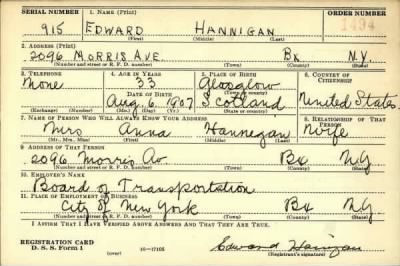 SERIAL NUMBER 1. NAME (Print) ORDER NUMBER
915 EDWARD HANNIGAN 1494
(First) (Middle) (Last)
2. ADDRESS (Print)
2096 MORRIS AVE Bx N.Y.
(Number and street or R. F. D. number) (Town) (County) (State)
3. TELEPHONE 4. AGE IN YEARS 5. PLACE OF BIRTH 6. COUNTRY OF CITIZENSHIP
None 33 Glasglow
DATE OF BIRTH (Town or county)
Aug. 6, 1907 Scotland United States
(Exchange) (Number) (Mo.) (Day) (Yr.) (State or country)
7. NAME OF PERSON WHO WILL ALWAYS KNOW YOUR ADDRESS 8. RELATIONSHIP OF THAT PERSON
Mrs Anna Hannegan Wife
(Mr., Mrs., Miss) (First) (Middle) (Last)
9. ADDRESS OF THAT PERSON
2096 Morris Av Bx NY
(Number and street or R. F. D. number) (Town) (County) (State)
10. EMPLOYER'S NAME
Board of Transportation
11. PLACE OF EMPLOYMENT OR BUSINESS
City of New York Bx NY
(Number and street or R. F. D. number) (Town) (County) (State)
I AFFIRM THAT I HAVE VERIFIED ABOVE ANSWERS AND THAT THEY ARE TRUE.
REGISTRATION CARD
D. S. S. Form 1 (over) 16—17105 Edward Hannigan
(Registrant's signature)